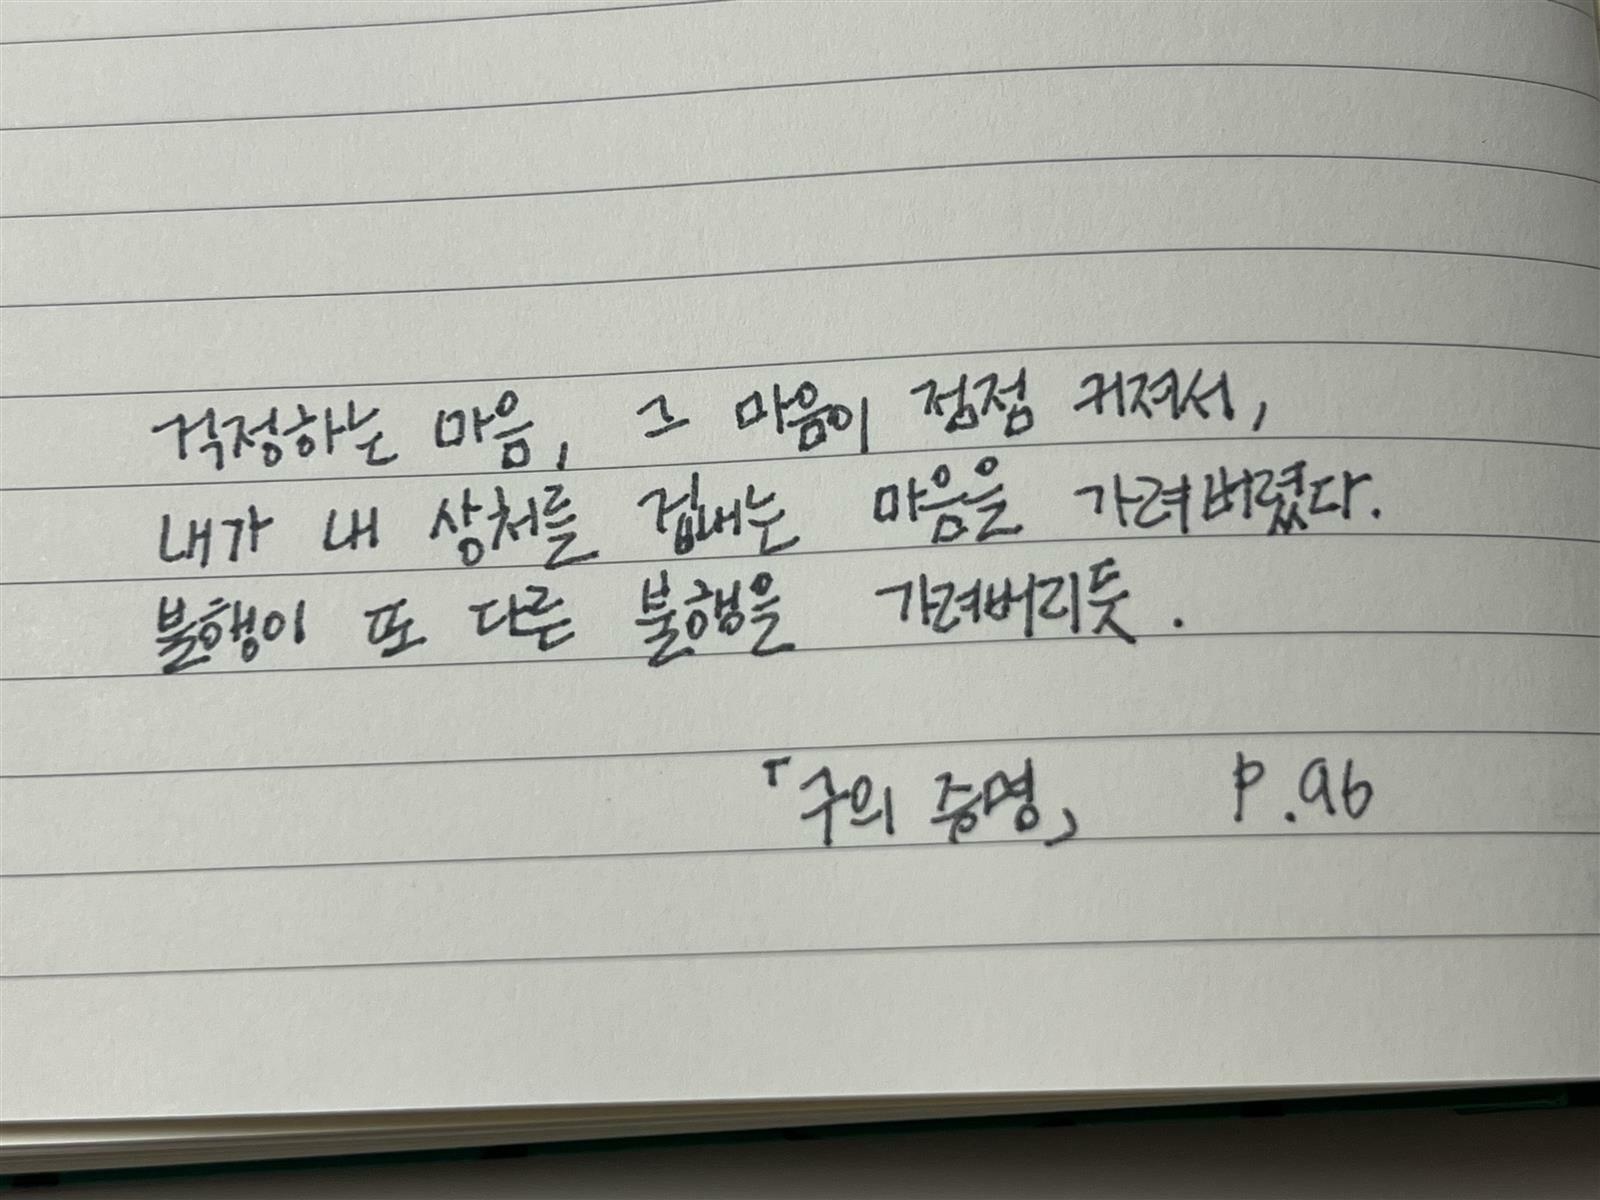 걱정하는 마음, 그 마음이 점점 커져서,
내가 내 상처를 겁내는 마음을 가려버렸다.
불행이 또 다른 불행을 가려버리듯.
「구의 증명」 P.96